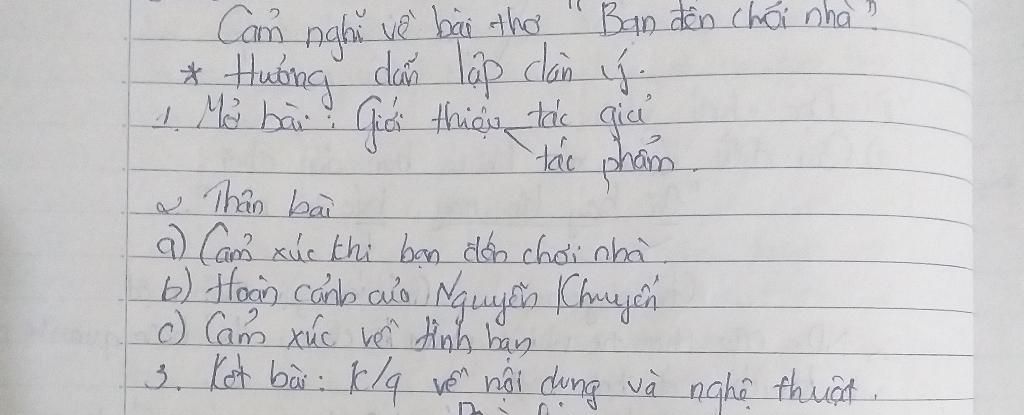 Cảm nghĩ về bài thơ "Bạn đến chơi nhà"
* Hướng dẫn lập dàn ý.
1. Mở bài: Giới thiệu tác giả
tác phẩm.
2 Thân bài
a) Cảm xúc khi bạn đến chơi nhà.
b) Hoàn cảnh của Nguyễn Khuyến
c) Cảm xúc về tình bạn
3. Kết bài: K/q về nội dung và nghệ thuật.